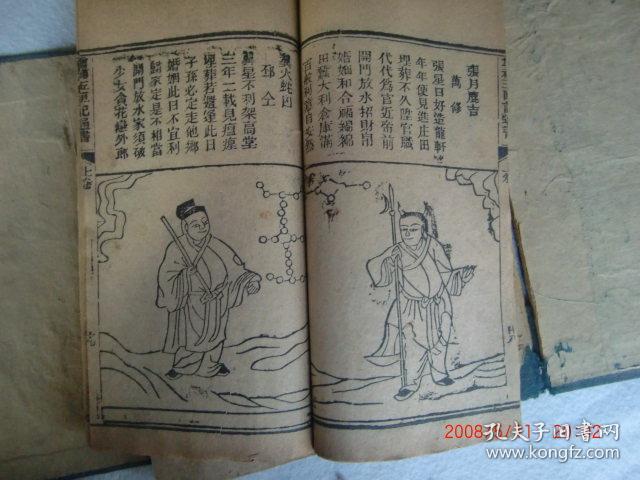 張月鹿吉
萬修
張星日好造龍軒
年年便見進庄田
埋葬不久陞官職
代代為官近帝前
開門放水招財帛
婚姻和合福綿綿
田蠶大利倉庫滿
翼火蛇凶
邳仝
翼星不利架高堂
三年二載見瘟
埋葬若還逢此日
子孫必定走他鄉
婚姻此日不宜利
歸家定是不相當
開門放水家須破
少女貪花戀外郎
上卷
2008
孔夫子旧书网
www.kongfz.com